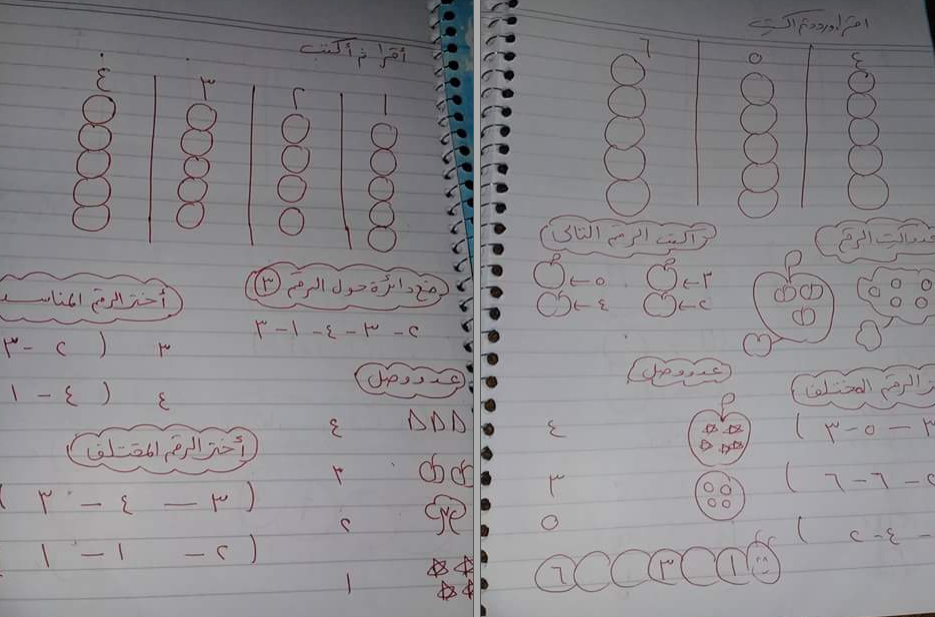 أقرأ ثم أكتب
١ ٢ ٣ ٤
ضع دائرة حول الرقم ٣
٢ - ٣ - ٤ - ١ - ٣
أختر الرقم المناسـ
٣ ( ٢ - ٣
٤ ( ٤ - ١
عد وصل
٤
٣
٢
١
أختر الرقم المختلف
( ٣ - ٤ - ٣ )
( ٢ - ١ - ١
اقرأ وردد ثم اكتب
٤ ٥ ٦
عد واكتب الرقم
اكتب الرقم التالى
٣ ← ٥ ←
٢ ← ٤ ←
ـر الرقم المختلف
٣ - ٥ - ٣ )
٢ - ٦ - ٦ )
- ٤ - ٢ )
عد وصل
٤
٣
٥
١ ٣ ٦